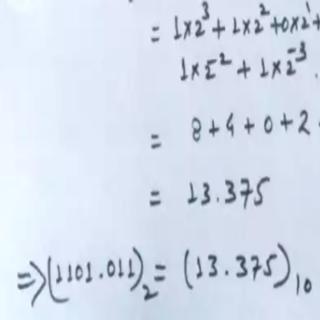 = 1×2³ + 1×2² + 0×2¹ +
1×2⁻² + 1×2⁻³
= 8 + 4 + 0 + 2
= 13.375
=> (1101.011)₂ = (13.375)₁₀